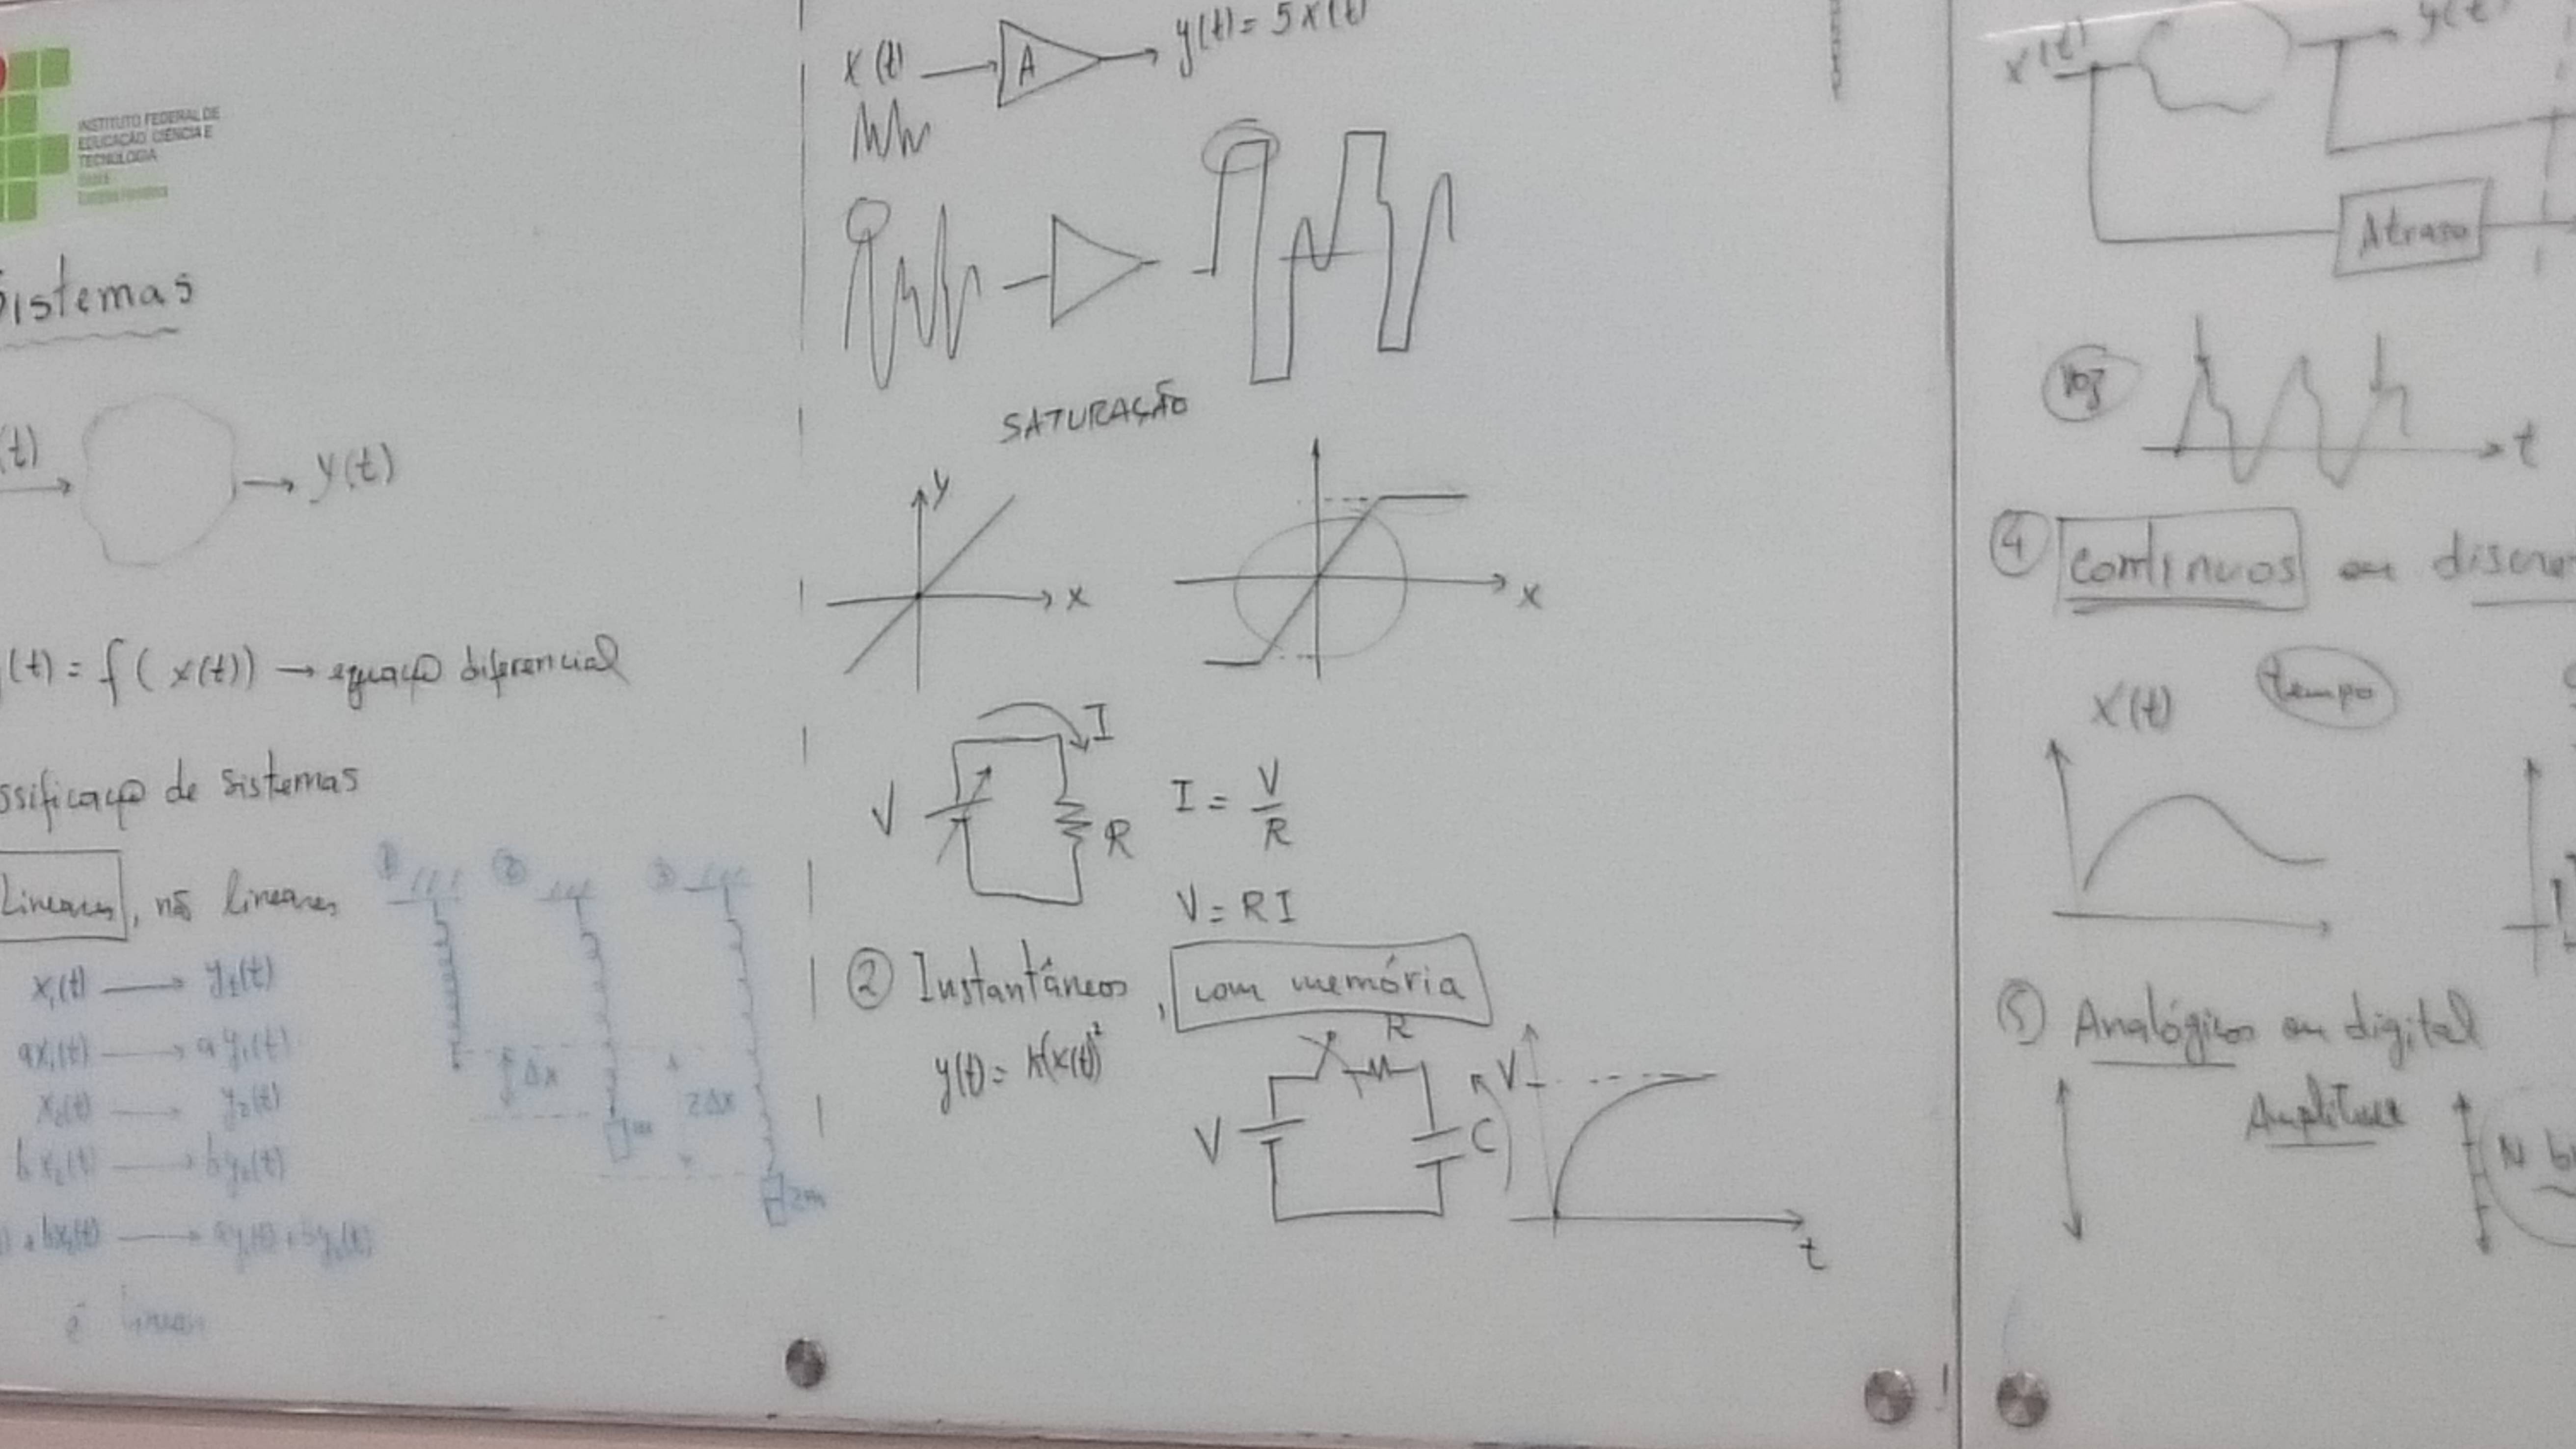 INSTITUTO FEDERAL DE
EDUCAÇÃO, CIÊNCIA E
TECNOLOGIA
Ceará
Sistemas
(t) → y(t)
(t) = f( x(t)) → equação diferencial
ssificação de sistemas
Lineares, não lineares
x₁(t) → y₁(t)
ax₁(t) → ay₁(t)
x₂(t) → y₂(t)
bx₂(t) → by₂(t)
+ bx₂(t) → ay₁(t) + by₂(t)
é linear
① ② ③
Δx
2Δx
m
2m
x(t) → A → y(t) = 5x(t)
SATURAÇÃO
y
x
x
I
V
R
I = V/R
V = RI
② Instantâneos, com memória
y(t) = k(x(t))²
R
V
C
V
t
x(t)
y(t)
Atraso
voz
t
④ contínuos ou discre
x(t)
tempo
⑤ Analógicos ou digital
Amplitude
N b